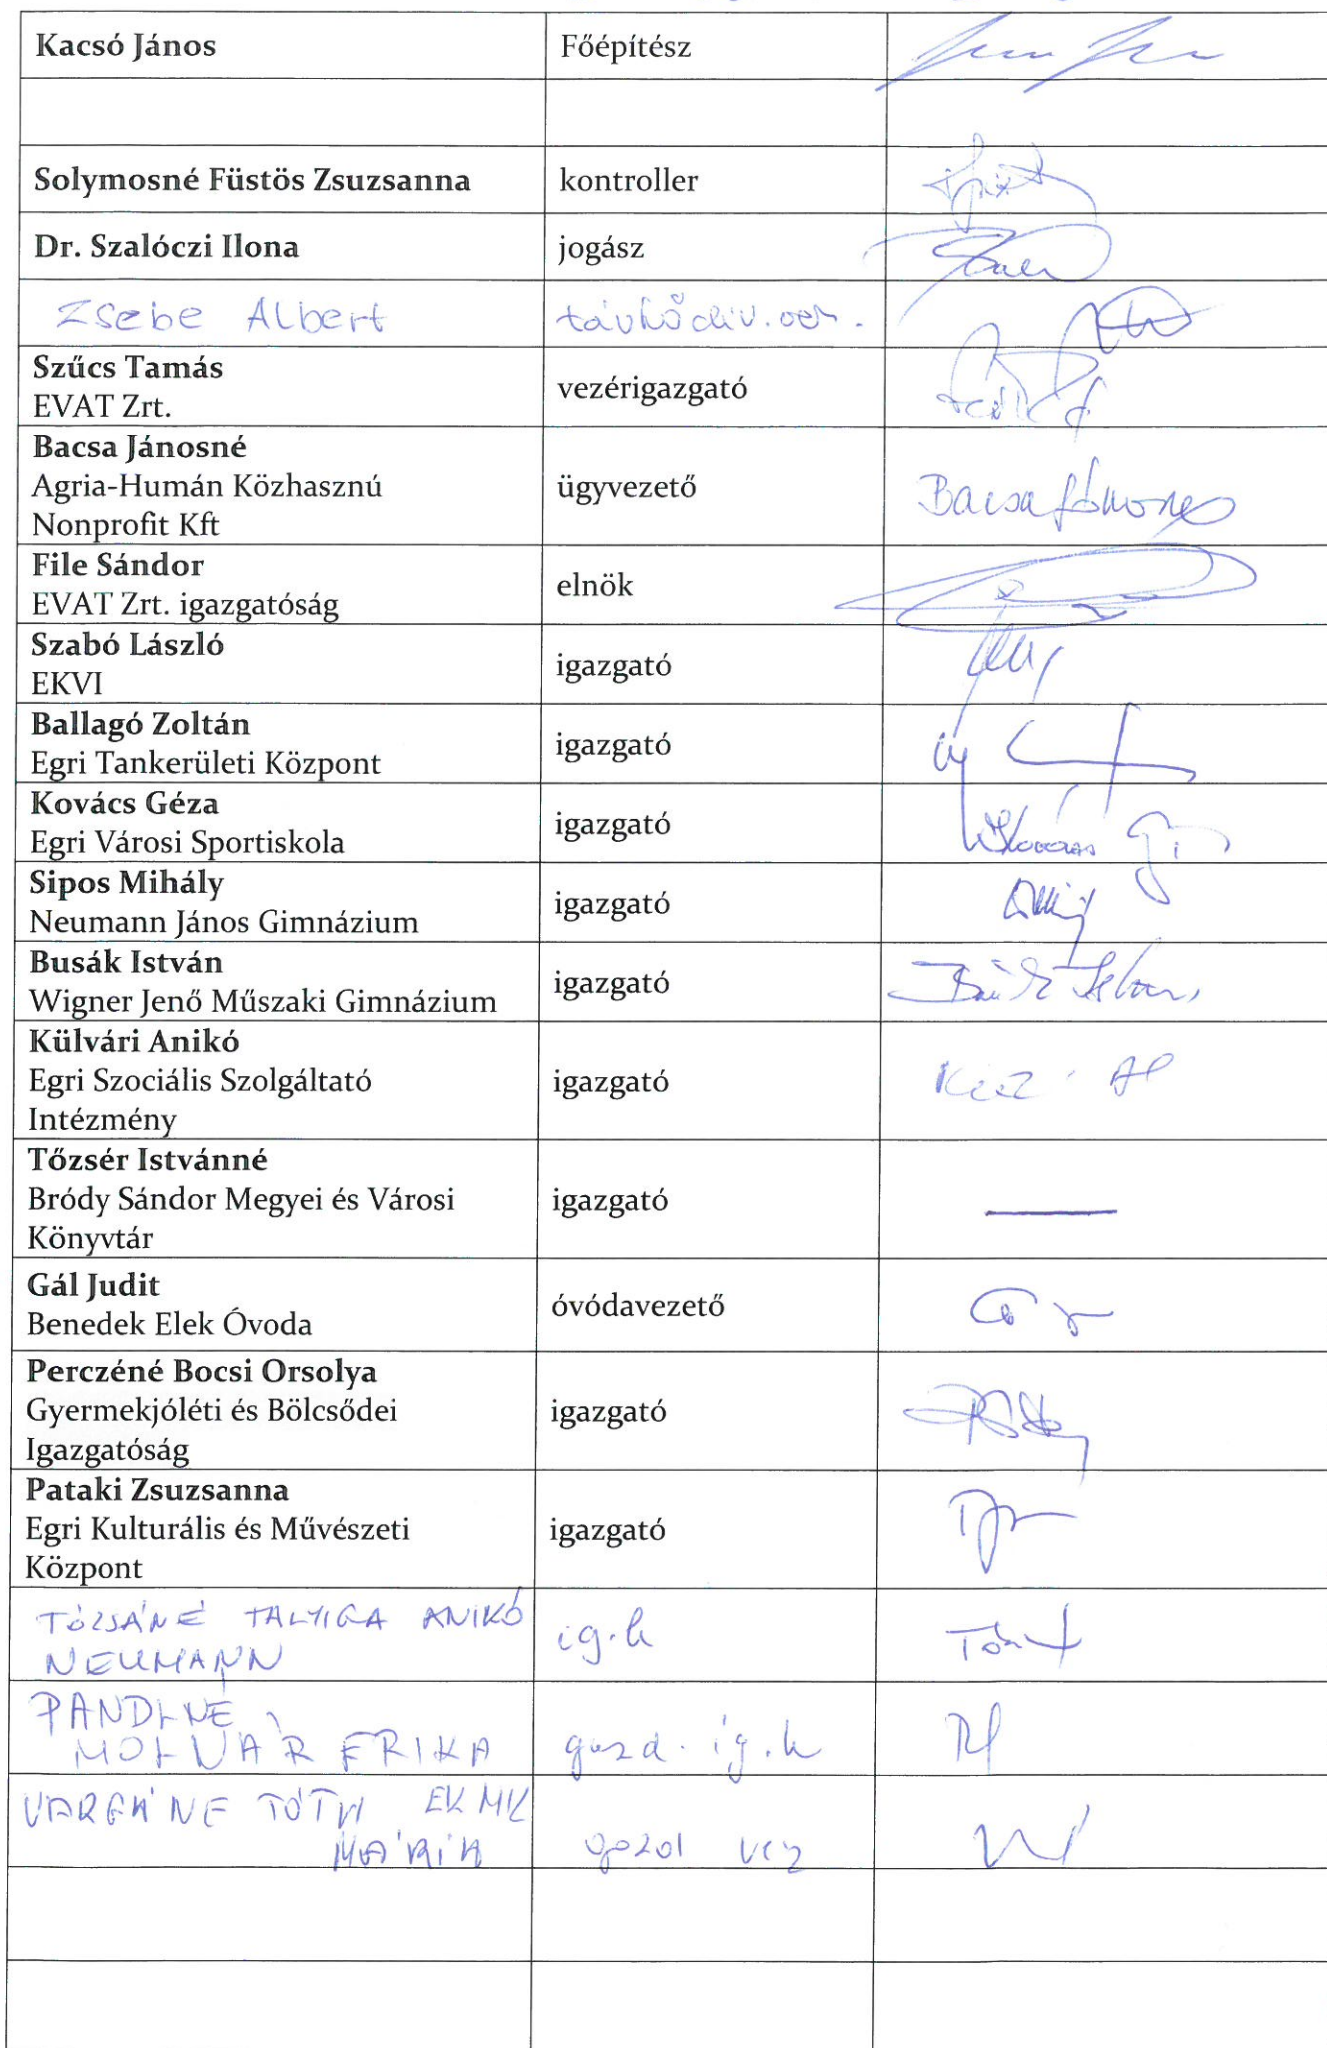 Kacsó János Főépítész
Solymosné Füstös Zsuzsanna kontroller
Dr. Szalóczi Ilona jogász
Zsebe Albert
Szűcs Tamás
EVAT Zrt.
vezérigazgató
Bacsa Jánosné
Agria-Humán Közhasznú
Nonprofit Kft
ügyvezető
Bacsa Jánosné
File Sándor
EVAT Zrt. igazgatóság
elnök
Szabó László
EKVI
igazgató
Ballagó Zoltán
Egri Tankerületi Központ
igazgató
Kovács Géza
Egri Városi Sportiskola
igazgató
Sipos Mihály
Neumann János Gimnázium
igazgató
Busák István
Wigner Jenő Műszaki Gimnázium
igazgató
Külvári Anikó
Egri Szociális Szolgáltató
Intézmény
igazgató
Tőzsér Istvánné
Bródy Sándor Megyei és Városi
Könyvtár
igazgató
Gál Judit
Benedek Elek Óvoda
óvódavezető
Perczéné Bocsi Orsolya
Gyermekjóléti és Bölcsődei
Igazgatóság
igazgató
Pataki Zsuzsanna
Egri Kulturális és Művészeti
Központ
igazgató
ANIKÓ
NEUMANN
ig.h
MOLNÁR ERIKA gazd. ig.h
TÓTH EKMK
MÁRIA